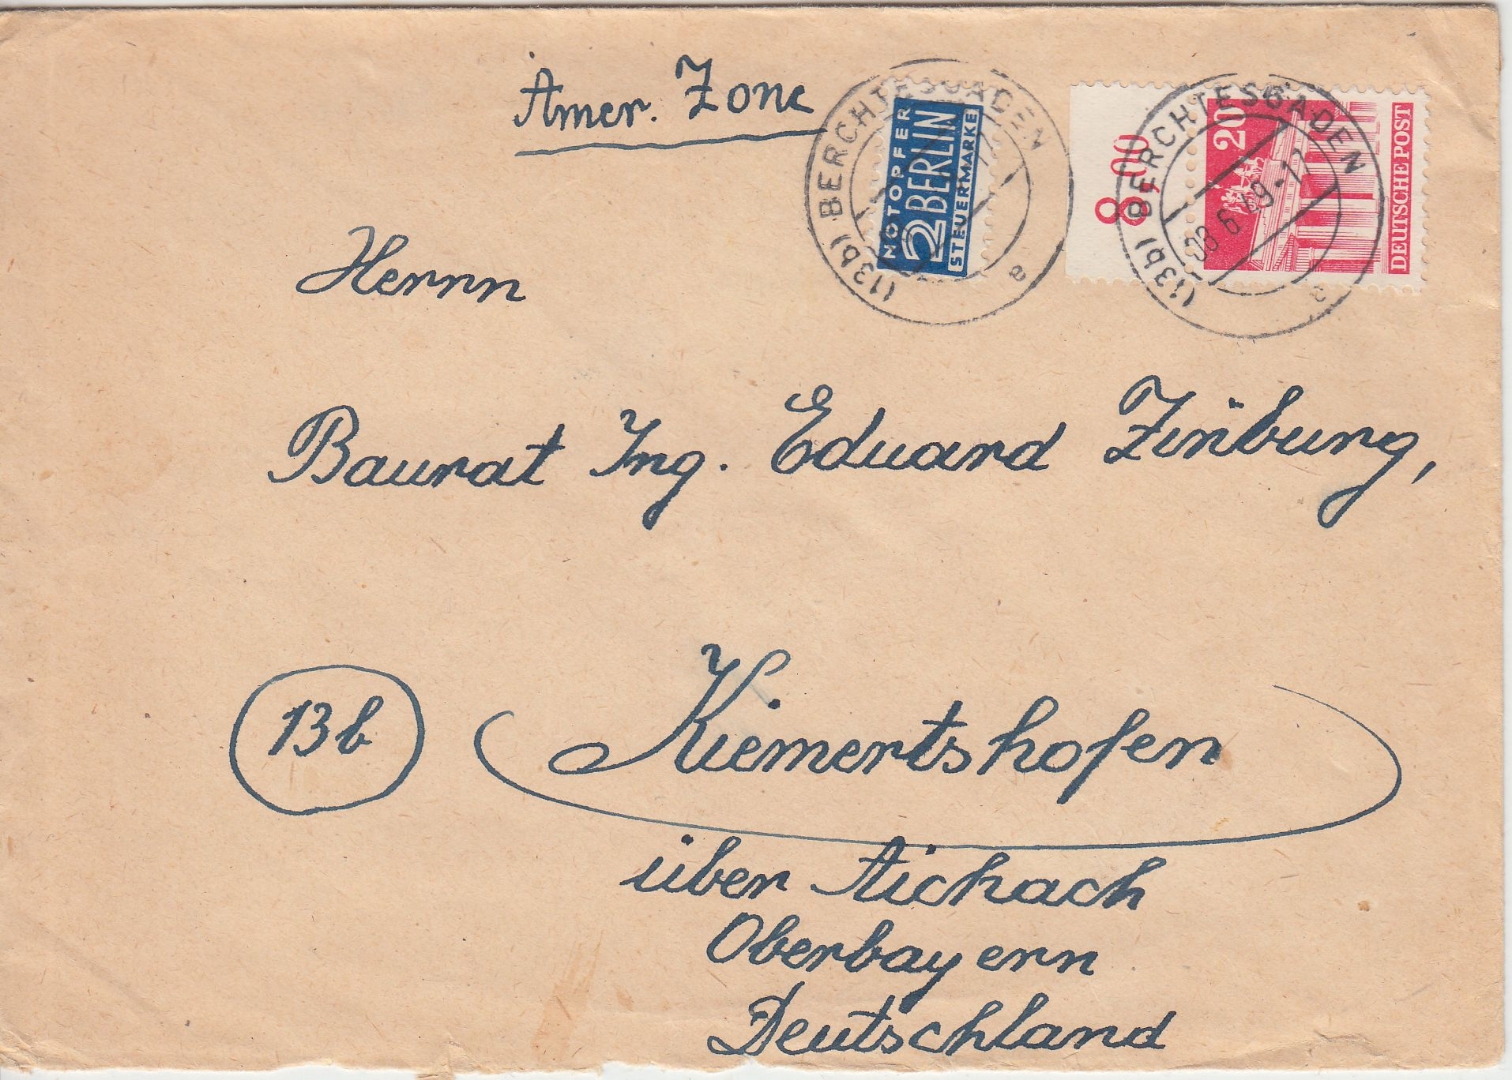 Amer. Zone
NOTOPFER
2 BERLIN
STEUERMARKE
(13b) BERCHTESGADEN
a
8,00
20
DEUTSCHE POST
(13b) BERCHTESGADEN
08.6.49-17
a
Herrn
Baurat Ing. Eduard Zinburg,
13b
Kiemertshofen
über Aichach
Oberbayern
Deutschland